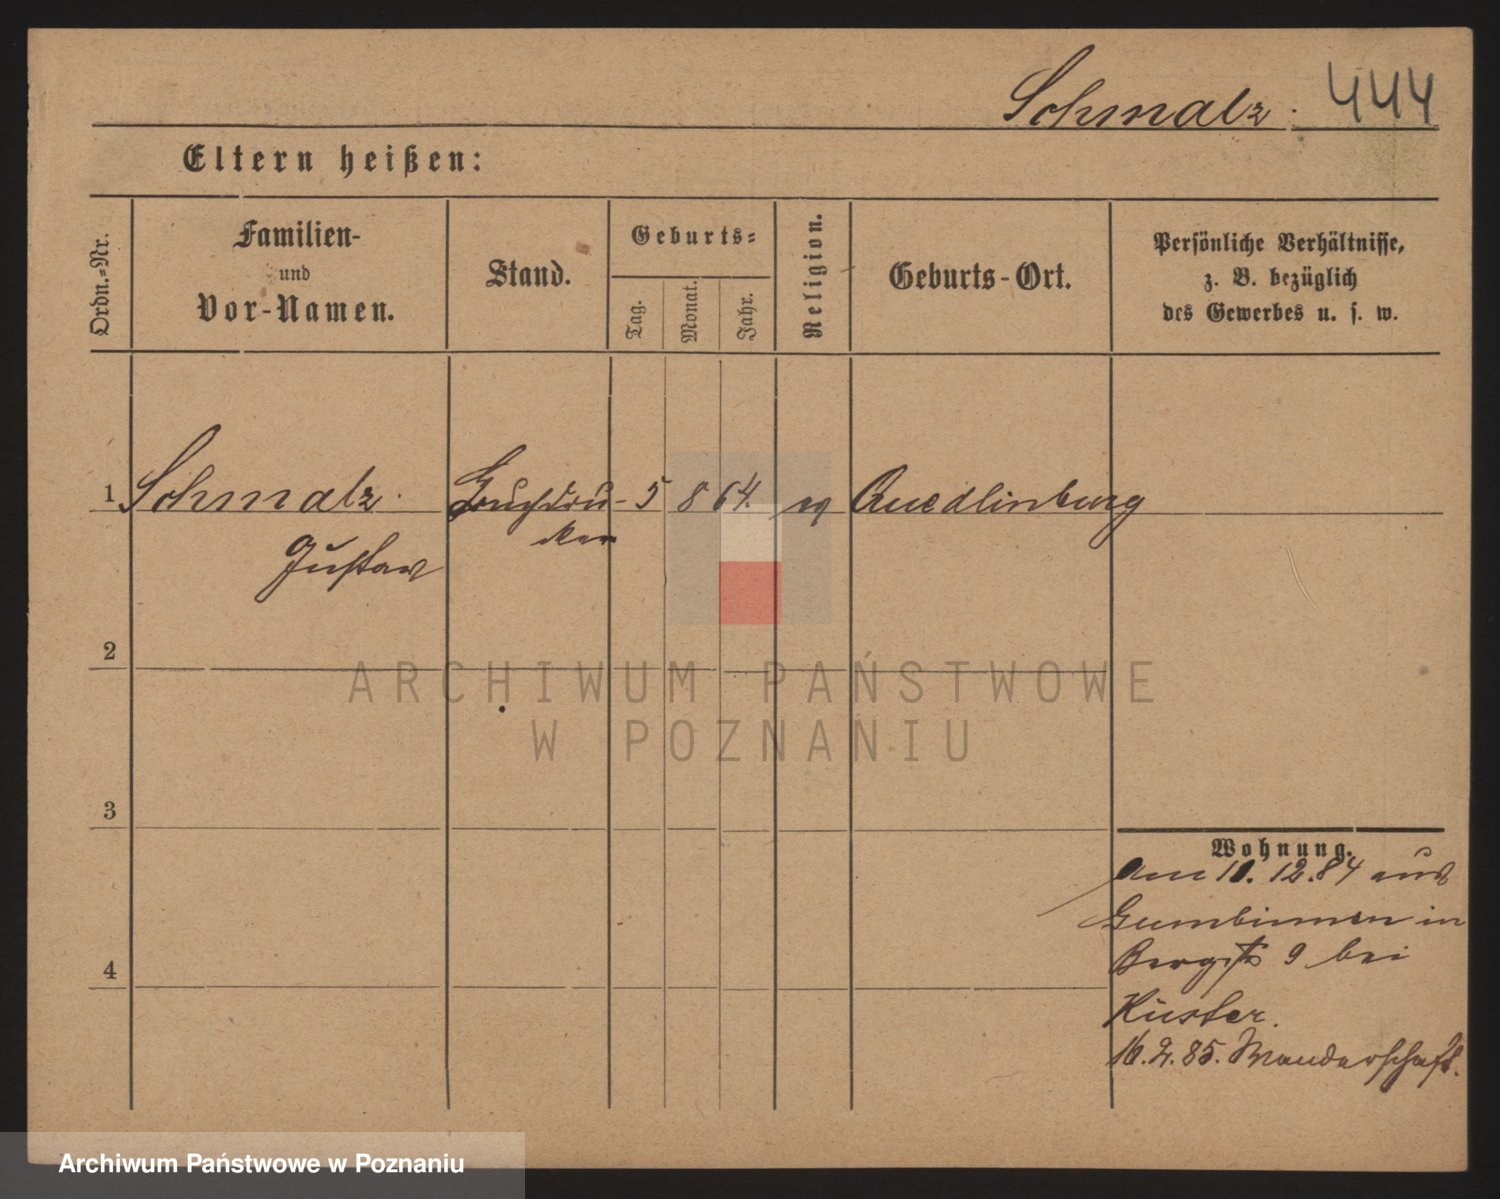 Schmalz. 444
Eltern heißen:
Ordn.-Nr.
Familien-
und
Vor-Namen.
Stand.
Geburts-
Tag.
Monat.
Jahr.
Religion.
Geburts-Ort.
Persönliche Verhältnisse,
z. B. bezüglich
des Gewerbes u. s. w.
1 Schmalz. Buchdru- 5 8 64. Quedlinburg
Gustav cker
2
3
4
Wohnung.
Am 10. 12. 84 aus
Gumbinnen in
Bergstr 9 bei
Küster.
16. 2. 85. Wanderschaft.
ARCHIWUM PAŃSTWOWE
W POZNANIU
Archiwum Państwowe w Poznaniu